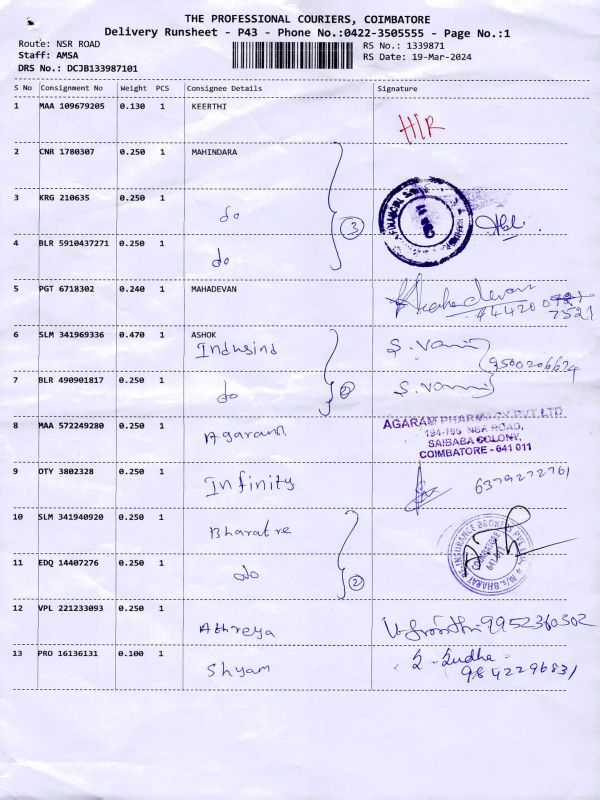 THE PROFESSIONAL COURIERS, COIMBATORE
Delivery Runsheet - P43 - Phone No.:0422-3505555 - Page No.:1
Route: NSR ROAD
RS No.: 1339871
Staff: AMSA
RS Date: 19-Mar-2024
DRS No.: DCJB133987101
S No Consignment No Weight PCS Consignee Details Signature
1 MAA 109679205 0.130 1 KEERTHI
2 CNR 1780307 0.250 1 MAHINDARA
3 KRG 210635 0.250 1 do
3
4 BLR 5910437271 0.250 1 do
5 PGT 6718302 0.240 1 MAHADEVAN
7521
6 SLM 341969336 0.470 1 ASHOK
Indusind S. Vani 9500206624
7 BLR 490901817 0.250 1 do 2 S. Vani
8 MAA 572249280 0.250 1 Agaram
AGARAM PHARMACY PVT LTD
194-196 NSR ROAD,
SAIBABA COLONY,
COIMBATORE - 641 011
9 OTY 3802328 0.250 1 Infinity 6379272761
10 SLM 341940920 0.250 1 Bharat re
11 EDQ 14407276 0.250 1 do 2
12 VPL 221233093 0.250 1 Athreya 9952360302
13 PRO 16136131 0.100 1 Shyam S. Sudha
9842296831